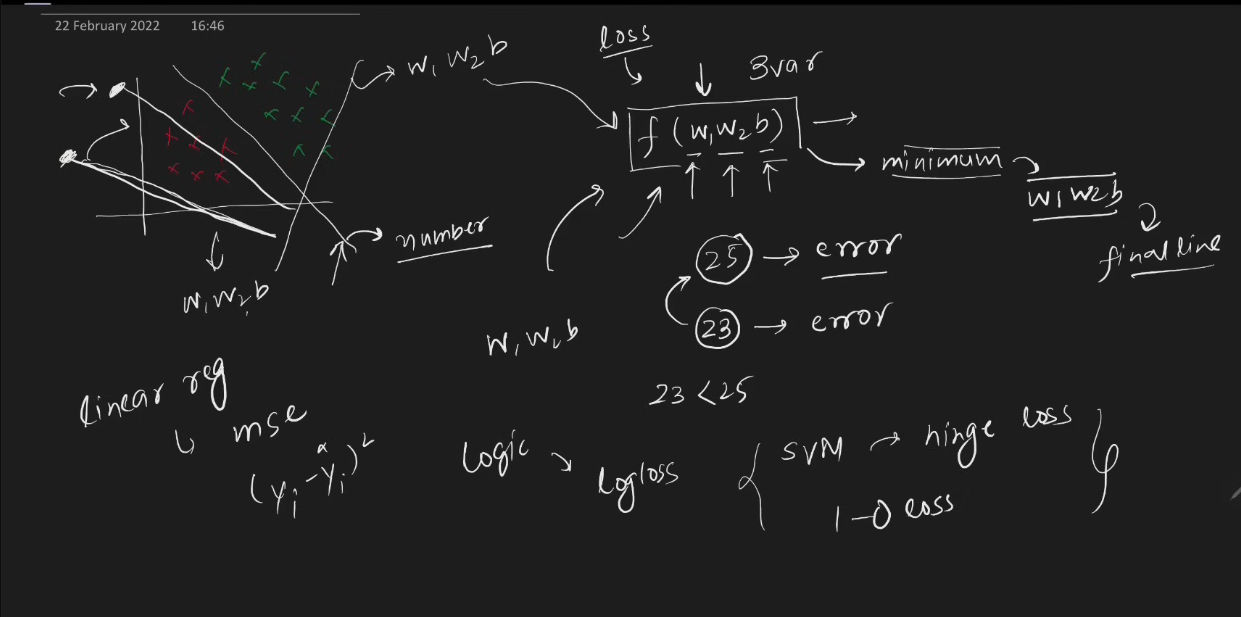 22 February 2022 16:46
loss
3var
w1 w2 b
f (w1 w2 b)
minimum
w1 w2 b
final line
number
25 → error
w1 w2 b
23 → error
w1 w2 b
23 < 25
linear reg
mse
(yi - ŷi)²
Logic → logloss
SVM → hinge loss
1-0 loss